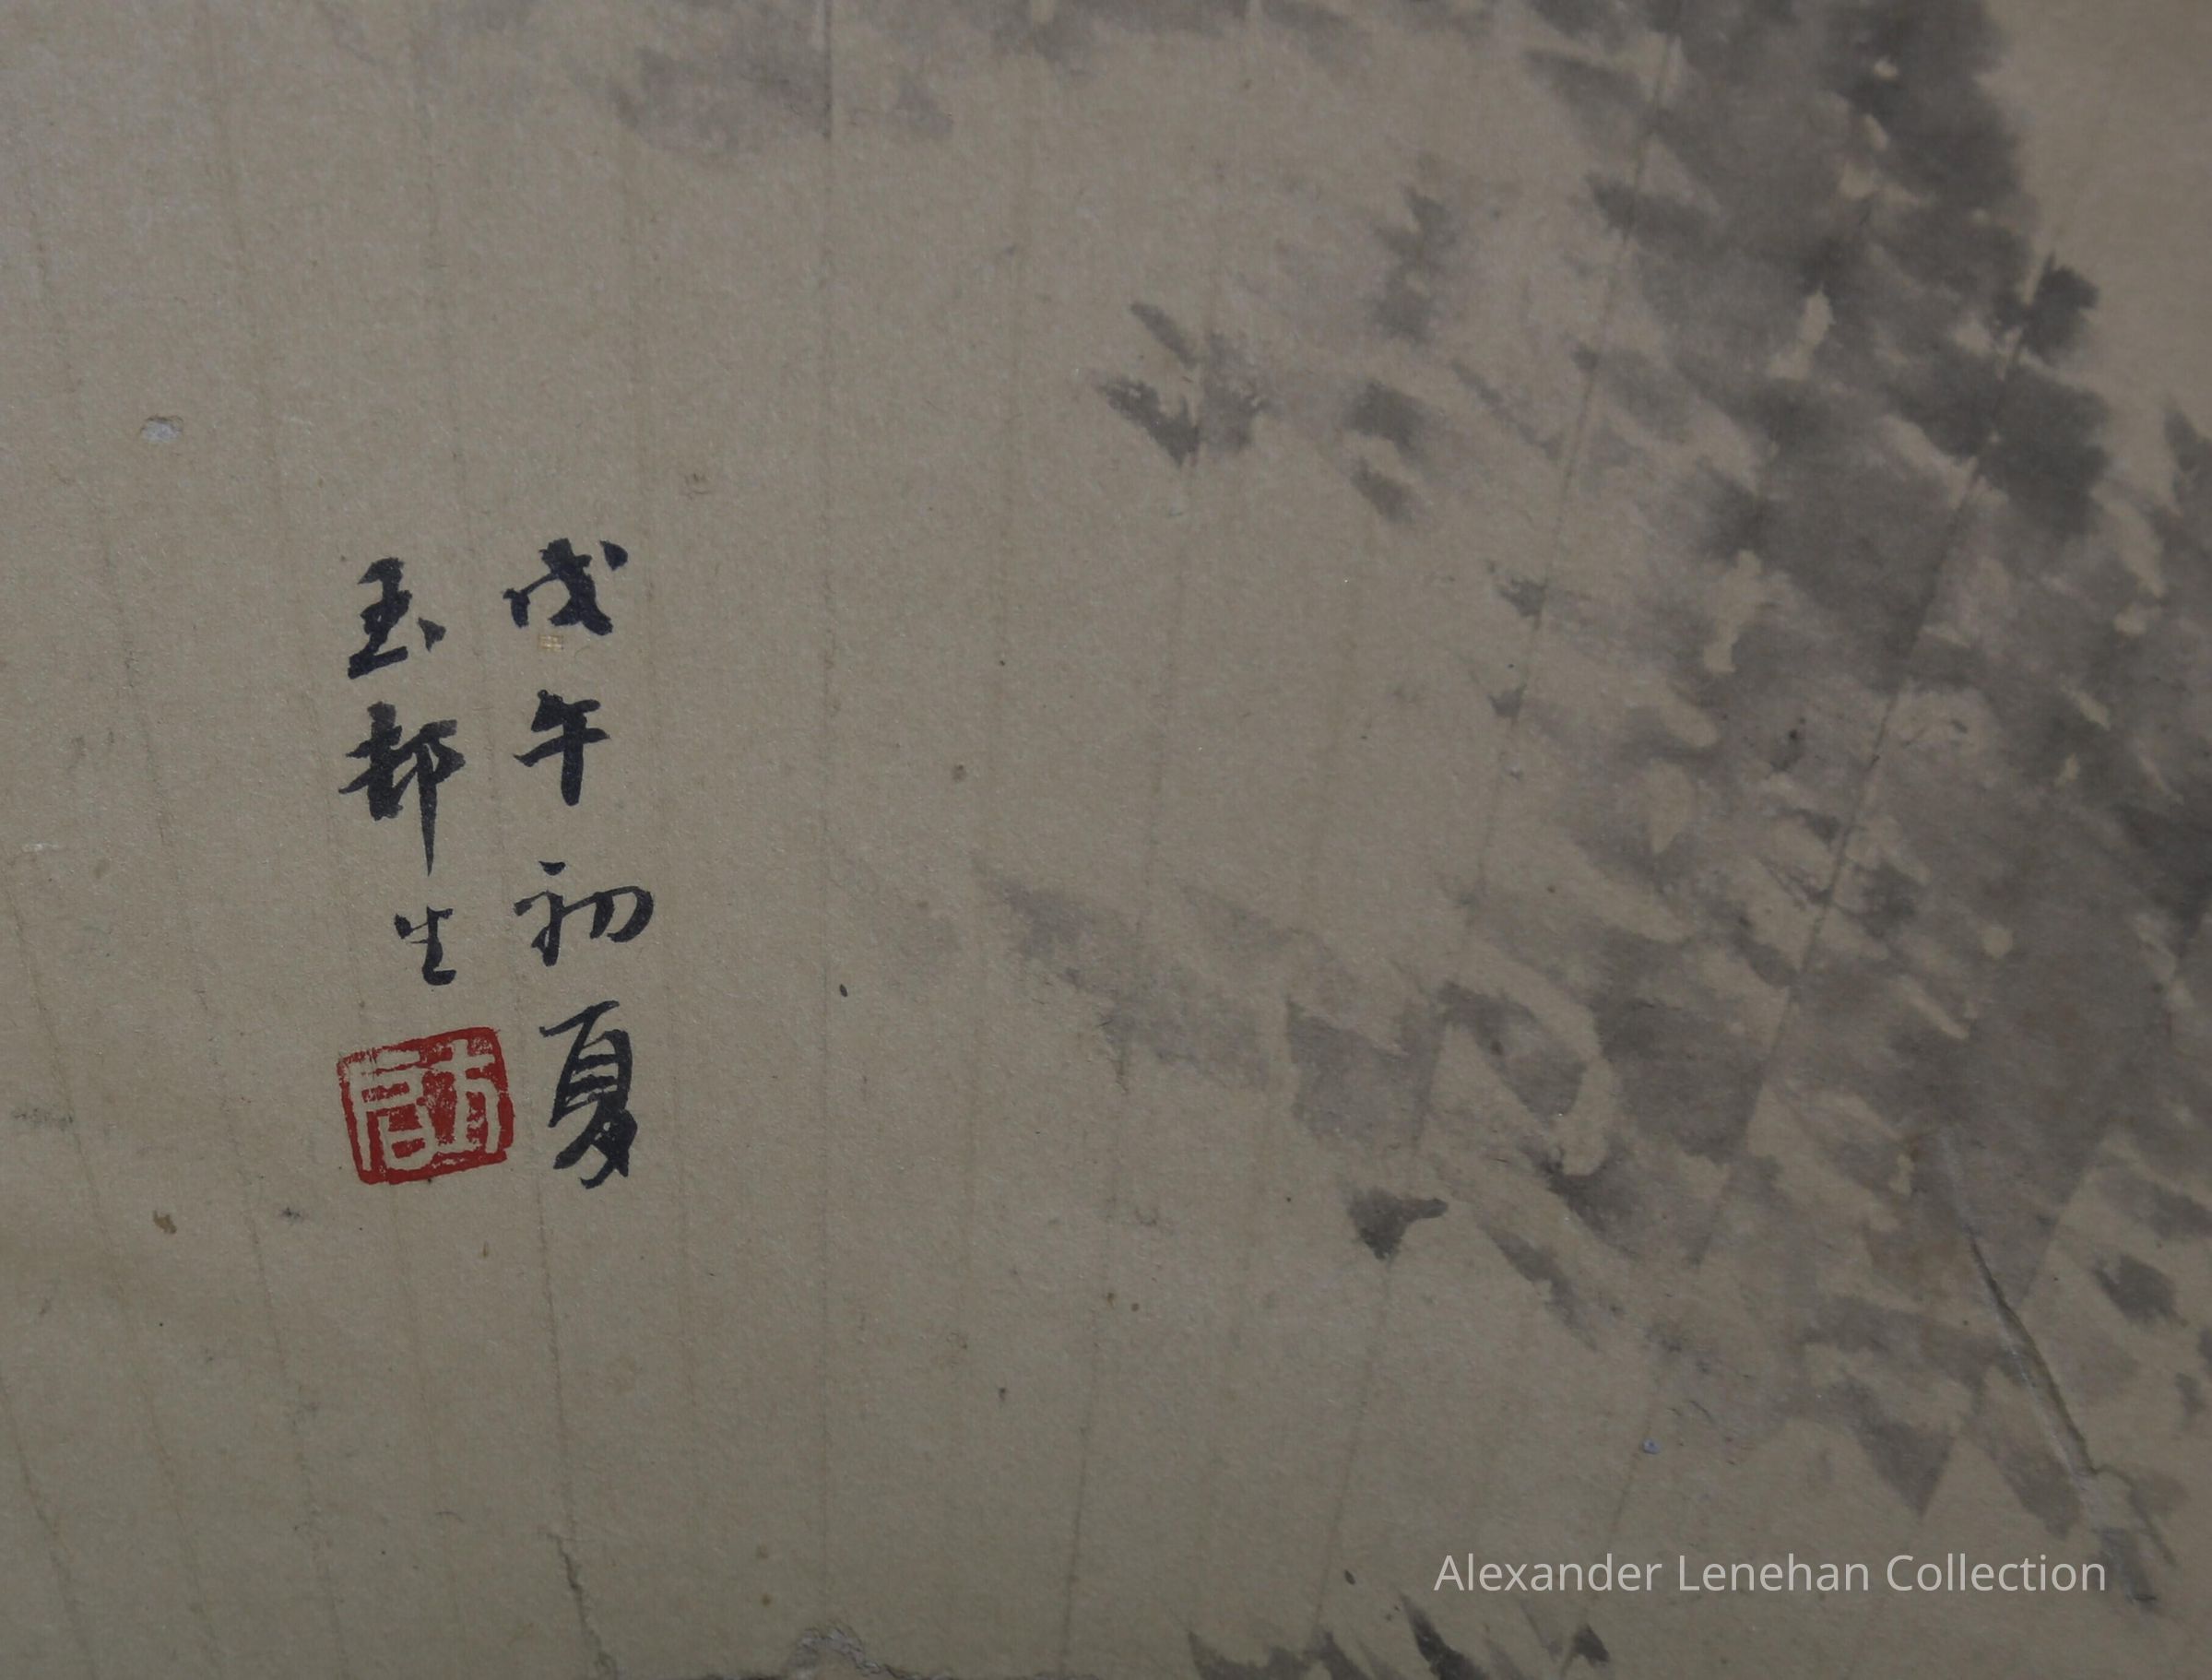 戊午初夏
玉邨生
Alexander Lenehan Collection